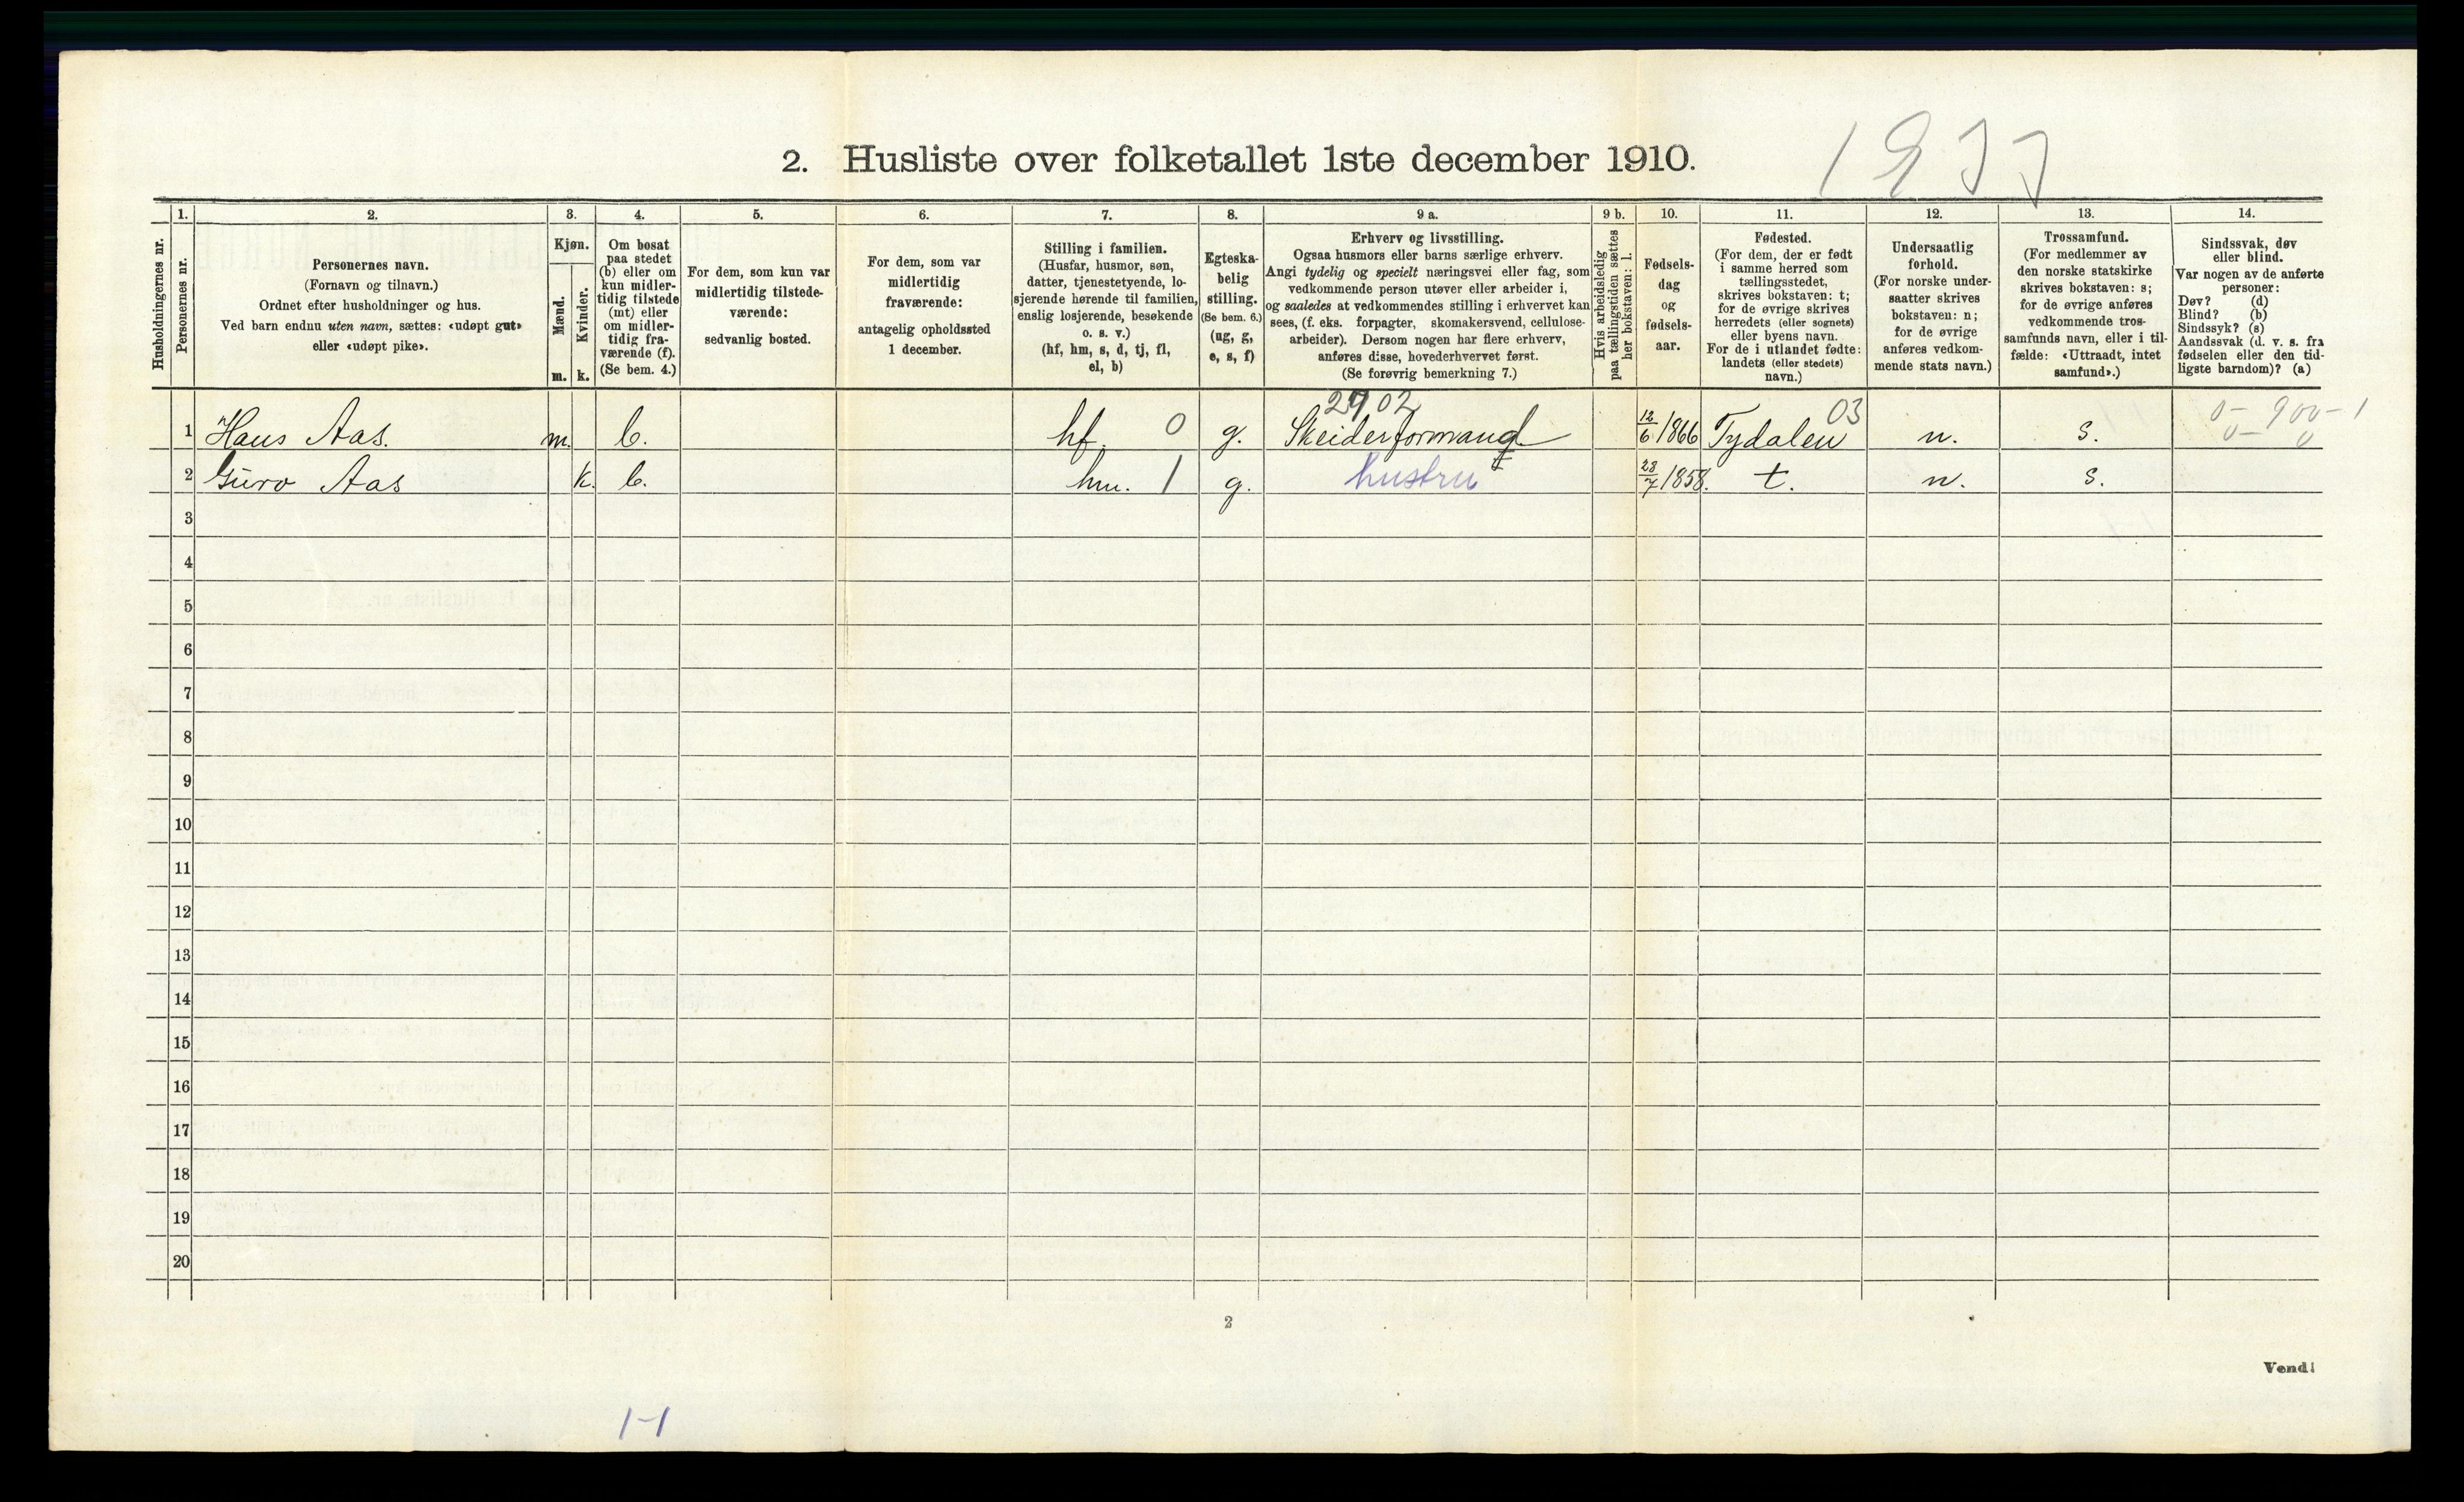 1977
2. Husliste over folketallet 1ste december 1910.
Husholdningernes nr.
1. Personernes nr.
2. Personernes navn.
(Fornavn og tilnavn.)
Ordnet efter husholdninger og hus.
Ved barn endnu uten navn, sættes: «udøpt gut»
eller «udøpt pike».
3. Kjøn.
Mænd. Kvinder.
m. k.
4. Om bosat
paa stedet
(b) eller om
kun midler-
tidig tilstede
(mt) eller
om midler-
tidig fra-
værende (f).
(Se bem. 4.)
5. For dem, som kun var
midlertidig tilstede-
værende:
sedvanlig bosted.
6. For dem, som var
midlertidig
fraværende:
antagelig opholdssted
1 december.
7. Stilling i familien.
(Husfar, husmor, søn,
datter, tjenestetyende, lo-
sjerende hørende til familien,
enslig losjerende, besøkende
o. s. v.)
(hf, hm, s, d, tj, fl,
el, b)
8. Egteska-
belig
stilling.
(Se bem. 6.)
(ug, g,
e, s, f)
9 a. Erhverv og livsstilling.
Ogsaa husmors eller barns særlige erhverv.
Angi tydelig og specielt næringsvei eller fag, som
vedkommende person utøver eller arbeider i,
og saaledes at vedkommendes stilling i erhvervet kan
sees, (f. eks. forpagter, skomakersvend, cellulose-
arbeider). Dersom nogen har flere erhverv,
anføres disse, hovederhvervet først.
(Se forøvrig bemerkning 7.)
9 b. Hvis arbeidsledig
paa tællingstiden sættes
her bokstaven: l.
10. Fødsels-
dag
og
fødsels-
aar.
11. Fødested.
(For dem, der er født
i samme herred som
tællingsstedet,
skrives bokstaven: t;
for de øvrige skrives
herredets (eller sognets)
eller byens navn.
For de i utlandet fødte:
landets (eller stedets)
navn.)
12. Undersaatlig
forhold.
(For norske under-
saatter skrives
bokstaven: n;
for de øvrige
anføres vedkom-
mende stats navn.)
13. Trossamfund.
(For medlemmer av
den norske statskirke
skrives bokstaven: s;
for de øvrige anføres
vedkommende tros-
samfunds navn, eller i til-
fælde: «Uttraadt, intet
samfund».)
14. Sindssvak, døv
eller blind.
Var nogen av de anførte
personer:
Døv? (d)
Blind? (b)
Sindssyk? (s)
Aandssvak (d. v. s. fra
fødselen eller den tid-
ligste barndom)? (a)
2902 03 0-900-1
1 Hans Aas. m. b. hf. 0 g. Skeiderformand 12/6 1866 Tydalen n. s. 0-0
2 Guro Aas k. b. hm. 1 g. hustru 23/7 1858. t. n. s.
3
4
5
6
7
8
9
10
11
12
13
14
15
16
17
18
19
20
2
Vend!
1-1